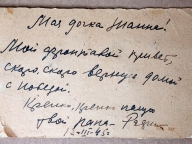 Моя дочка Жанна!
Мой фронтовой привет,
скоро, скоро вернусь домой
с победой.
Крепко, крепко целую
твой папа-
-III-45.